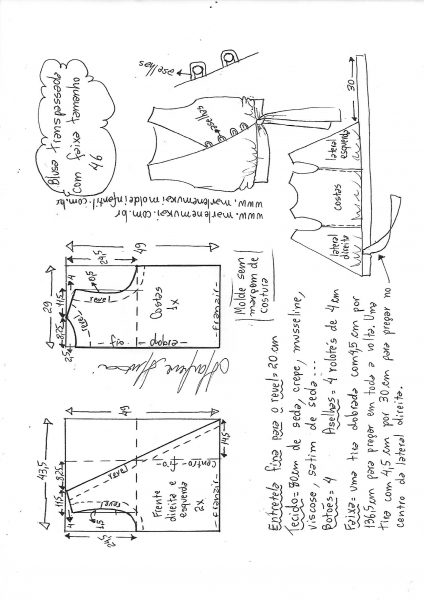 Blusa transpassada
com faixa tamanho
46
aselhas
aselhas
www.marlenemukai.com.br
www.marlenemukaimoldeinfantil.com.br
30
lateral
direita
costas
lateral
esquerda
43,5
8,25
11,5
4
24,5
1,5
49
14,5
revel
revel
Centro-fio
Frente
direita e
esquerda
2x
Franzir
29
8,25
11,5
4
2,5
0,5
29,5
49
revel
revel
Costas
1x
fio
dobra
Franzir
Molde sem
margem de
costura
Entretela fina para o revel=20 cm
Tecido=80cm de seda, crepe, musseline,
viscose, satim de seda...
Botões=4 Aselhas=4 rolotês de 4cm
Faixa=uma tira dobrada com 4,5 cm por
136,5cm para pregar em toda a volta. Uma
tira com 4,5 cm por 30cm para pregar no
centro da lateral direita.